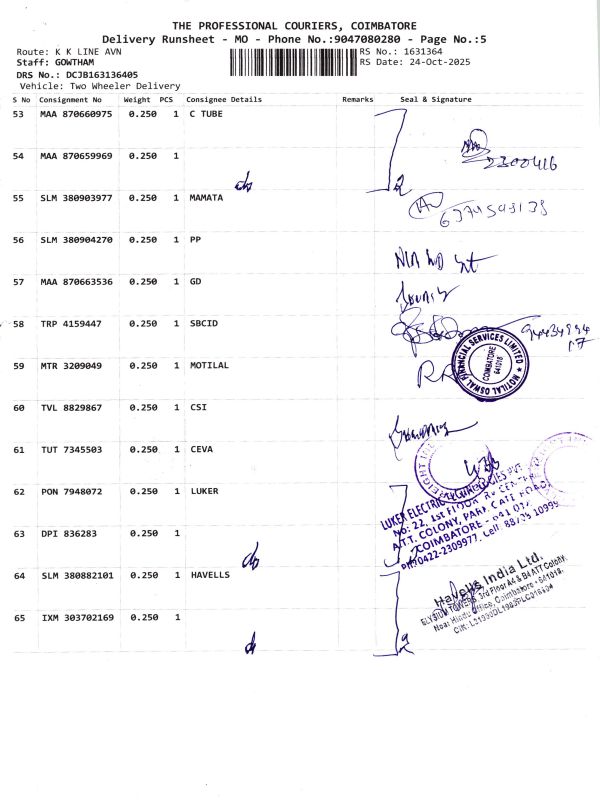 THE PROFESSIONAL COURIERS, COIMBATORE
Delivery Runsheet - MO - Phone No.:9047080280 - Page No.:5
Route: K K LINE AVN
RS No.: 1631364
Staff: GOWTHAM
RS Date: 24-Oct-2025
DRS No.: DCJB163136405
Vehicle: Two Wheeler Delivery
S No Consignment No Weight PCS Consignee Details Remarks Seal & Signature
53 MAA 870660975 0.250 1 C TUBE
54 MAA 870659969 0.250 1
2300416
55 SLM 380903977 0.250 1 MAMATA
56 SLM 380904270 0.250 1 PP
57 MAA 870663536 0.250 1 GD
58 TRP 4159447 0.250 1 SBCID
59 MTR 3209049 0.250 1 MOTILAL
MOTILAL OSWAL FINANCIAL SERVICES LIMITED
COIMBATORE
641018
60 TVL 8829867 0.250 1 CSI
61 TUT 7345503 0.250 1 CEVA
62 PON 7948072 0.250 1 LUKER
LUKER ELECTRIC
No: 22, 1st FLOOR
A.T.T. COLONY, PARK GATE ROAD
COIMBATORE
PH:0422-2309977, Cell: 88735 10999
63 DPI 836283 0.250 1
64 SLM 380882101 0.250 1 HAVELLS
Havells India Ltd.
ELYSIUM TOWERS, 3rd Floor A4 & B4 ATT Colony
Near Hindu Office, Coimbatore - 641018.
65 IXM 303702169 0.250 1
2